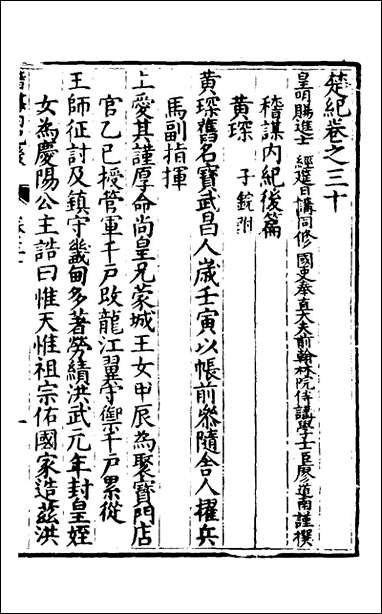 楚紀卷之三十
皇明賜進士 經筵日講同修 國史奉直大夫前翰林院侍講學士臣廖道南謹撰
稽謀內紀後篇
黃琛 子鉉附
黃琛舊名寶武昌人歲壬寅以帳前叅隨舍人擢兵
馬副指揮
上愛其謹厚命尚皇兄蒙城王女甲辰為聚寶門店
官乙巳授管軍千戶改龍江翼守禦千戶累從
王師征討及鎮守畿甸多著勞績洪武元年封皇姪
女為慶陽公主誥曰惟天惟祖宗佑國家造茲洪